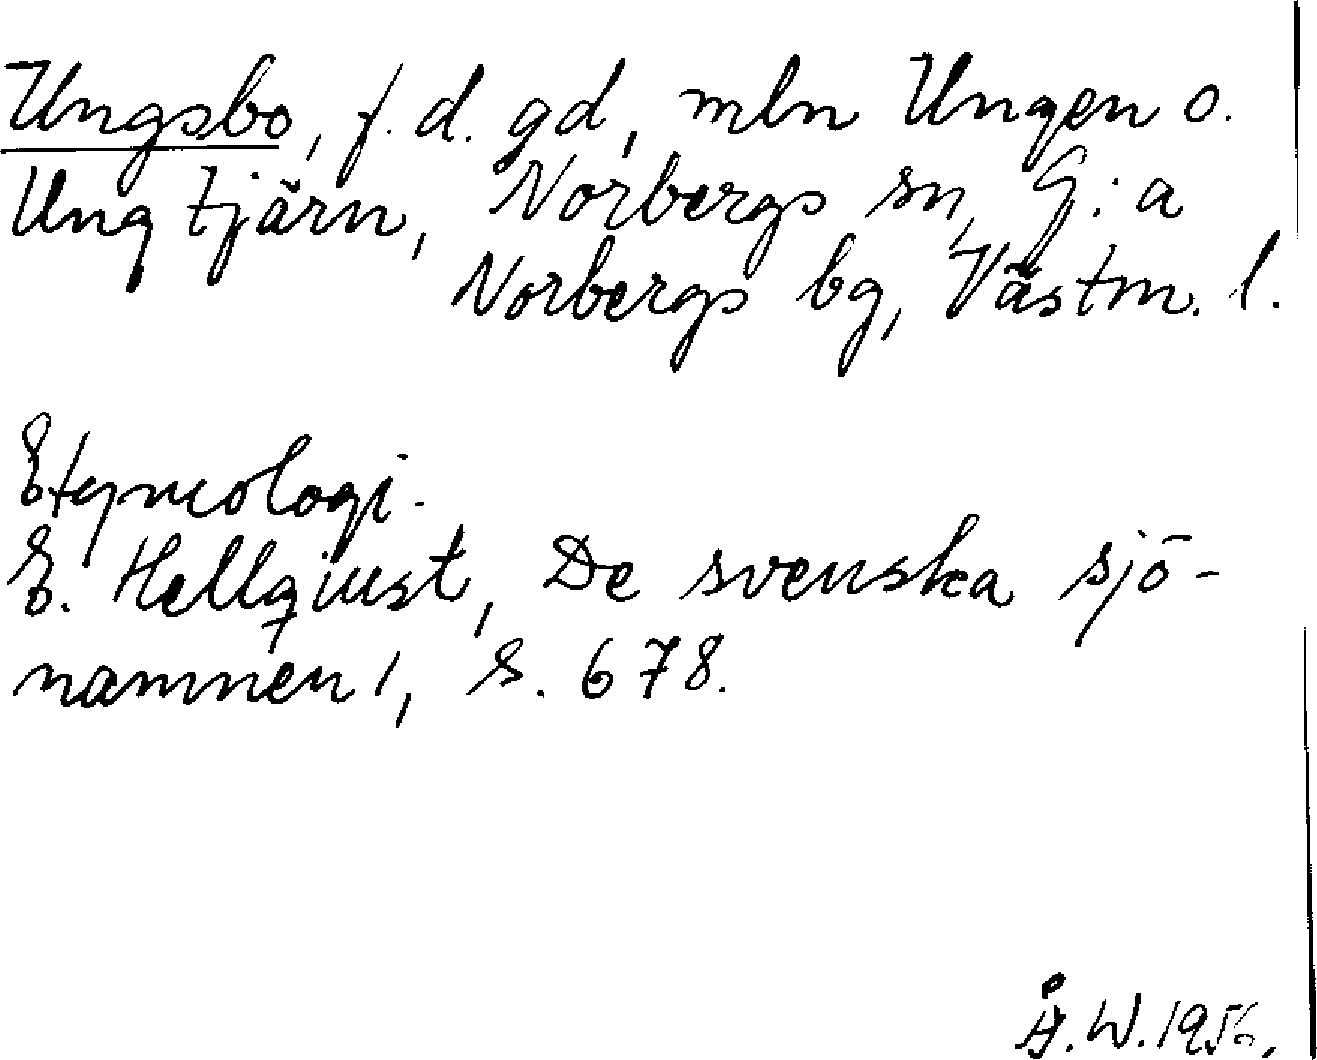 Ungsbo, f. d. gd, mln Ungen o.
Ungtjärn, Norbergs sn, G:a
Norbergs bg, Västm. l.
Etymologi.
E. Hellquist, De svenska sjö-
namnen 1, s. 678.
Å. W. 1956.